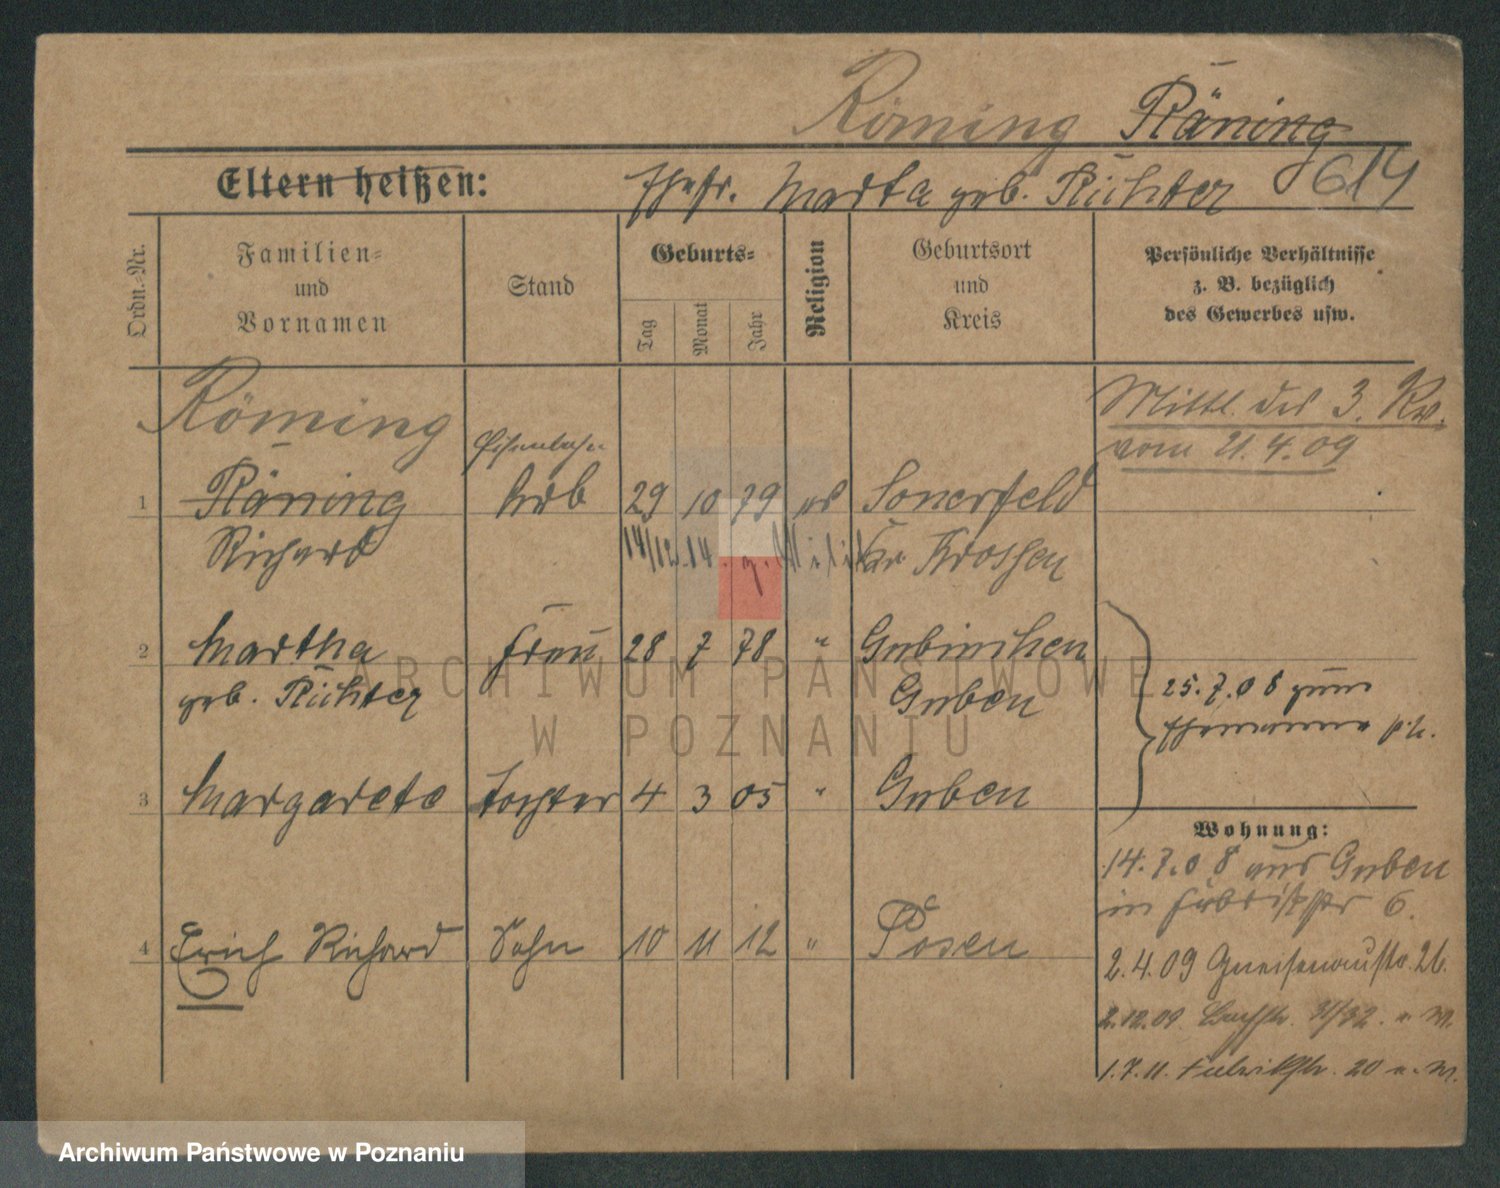 Röming Räning
Eltern heißen: Ehefr. Marta geb. Richter 614
Ordn.-Nr.
Familien-
und
Vornamen
Stand
Geburts-
Tag
Monat
Jahr
Religion
Geburtsort
und
Kreis
Persönliche Verhältnisse
z. B. bezüglich
des Gewerbes usw.
Röming
Mittl. des 3. Rv.
vom 21.4.09
Eisenbahn
1 Räning Arb 29 10 79 Sonerfeld
Richard 14/12.14. z. Militär Kr Krossen
2 Martha Frau 28 7 78 " Gubinchen
geb. Richter Guben
25.7.08 zum
Ehemanne
3 Margarete Tochter 4 3 05 " Guben
Wohnung:
14.7.08 aus Guben
in Fabrikstr 6.
4 Erich Richard Sohn 10 11 12 " Posen
2.4.09 Gneisenaustr. 26.
2.10.09 Bachstr. 31/32. n. M.
1.7.11. Fabrikstr. 20 n. M.
ARCHIWUM PAŃSTWOWE
W POZNANIU
Archiwum Państwowe w Poznaniu